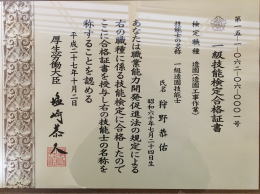 第一五-一-〇六二-〇六-〇〇〇一号
一級技能検定合格証書
検定職種 造園(造園工事作業)
技能士の名称 一級造園技能士
氏名 狩野恭佑
昭和六十年七月二十四日生
あなたは職業能力開発促進法の規定による
右の職種に係る技能検定に合格したので
ここに合格証書を授与し右の技能士の名称を
称することを認める
平成二十七年十月二日
厚生労働大臣 塩崎恭久